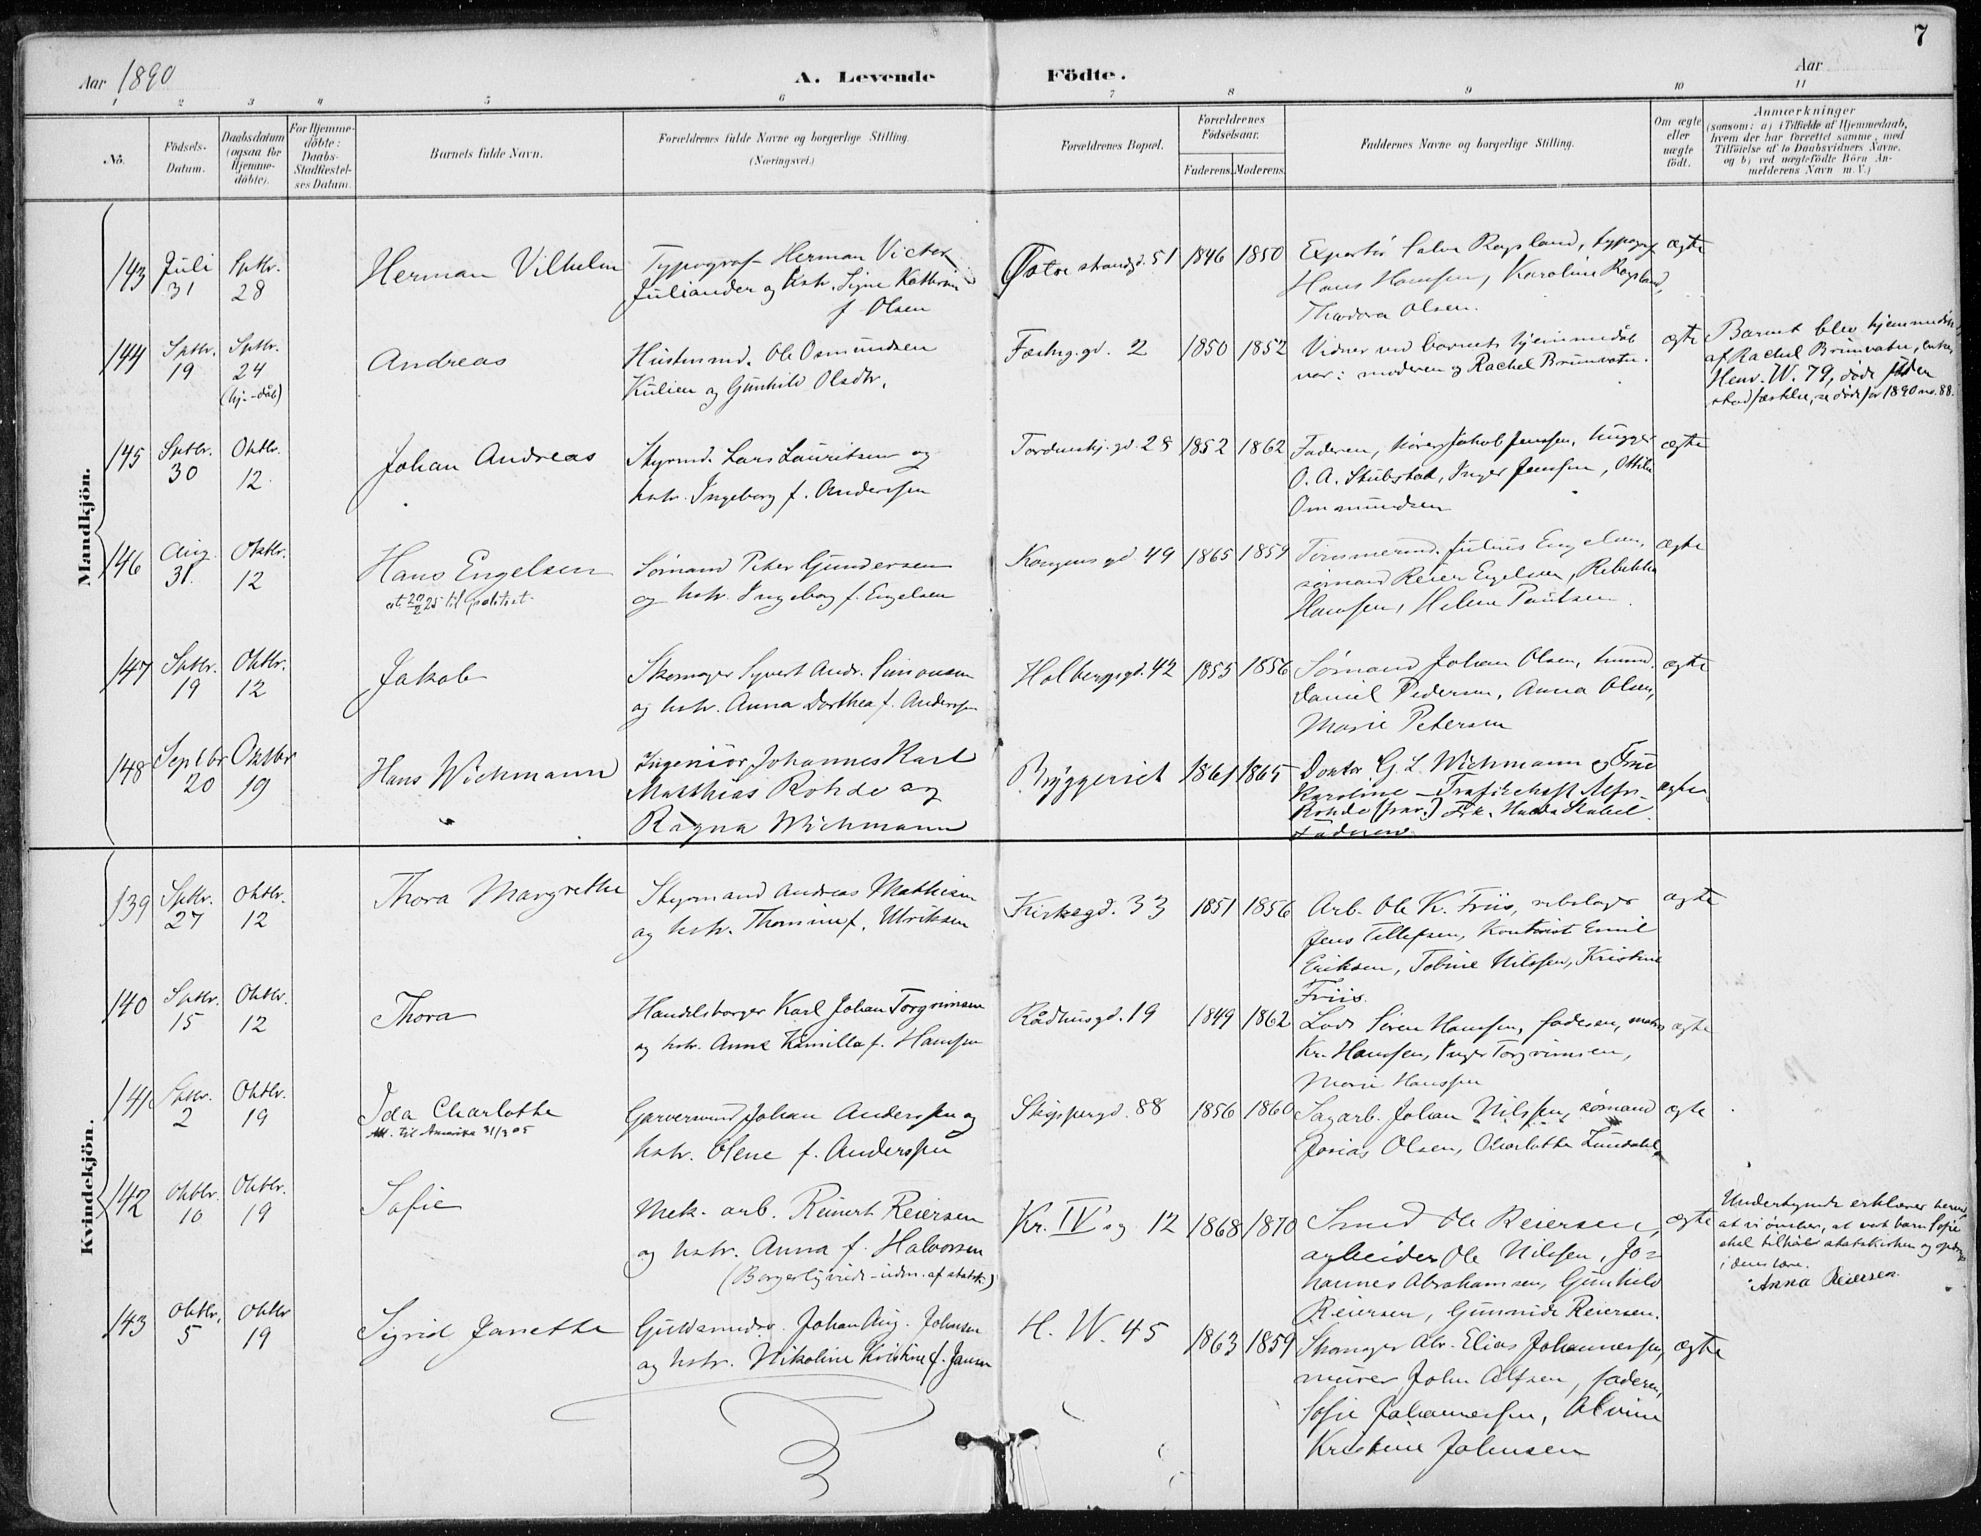 7
Aar 1890
A. Levende
Födte.
Aar
1 2 3 4 5 6 7 8 9 10 11
No.
Födsels-
Datum.
Daabsdatum
(ogsaa for
Hjemme-
döbte).
For Hjemme-
döbte:
Daabs-
Stadfæstel-
ses Datum.
Barnets fulde Navn.
Forældrenes fulde Navne og borgerlige Stilling.
(Næringsvei.)
Forældrenes Bopæl.
Forældrenes
Födselsaar.
Faderens. Moderens.
Faddernes Navne og borgerlige Stilling.
Om ægte
eller
uægte
födt.
Anmærkninger
(saasom: a) i Tilfælde af Hjemmedaab,
hvem der har forrettet samme, med
Tilföielse af to Daabsvidners Navne,
og b) ved uægtefödte Börn An-
melderens Navn m. V.)
Mandkjön.
143 Juli 31 Sptbr. 28
Herman Vilhelm
Typograf Herman Victor
Juliander og hstr. Signe Kathrine
f. Olsen
Østre strandgd. 51 1846 1850
Salve Rogsland, typograf
Hans Hansen, Karoline Rogsland,
Theodora Olsen.
ægte
144 Sptbr. 19 Sptbr. 24
(hj.-dåb)
Andreas
Husmand. Ole Osmundsen
Kulien og Gunhild Olsdtr.
Fæstng.gd. 2 1850 1852
Vidner ved barnets hjemmedåb
var: moderen og Rachel Brunvatn.
ægte
Barnet blev hjemmedøbt
af Rachel Brunvatn,
Henr. W. 79, døde uden
stadfæstelse, se døde for 1890 no. 88.
145 Sptbr. 30 Oktbr. 12.
Johan Andreas
Styrmd. Lars Lauritsen og
hstr. Ingeborg f. Anderssen
Tordenskj. gd. 28 1852 1862
Faderen, Jakob Jenssen, hugger
O. A. Stubstad, Inger Jenssen, Ottilie
Ommundsen
ægte
146 Aug. 31. Oktbr. 12
Hans Engelsen
Sømand Peter Gundersen
og hstr. Ingeborg f. Engelsen
Kongensgd 49 1865 1859
Tømmermd. Julius Engelsen,
sømand Reier Engelsen, Rebekka
Hansen, Helene Paulsen.
ægte
147 Sptbr. 19 Oktbr. 12
Jakob
Skomager Syvert Andr. Simonsen
og hstr. Anna Dorthea f. Anderssen
Holbergsgd. 42 1855 1856
Sømand Johan Olsen, tømmd.
Daniel Pedersen, Anna Olsen,
Marie Petersen
ægte
148 Septbr 20 Oktbr 19
Hans Wichmann
Ingeniør Johannes Karl
Matthias Rohde og
Ragna Wichmann
Bryggeriet 1861 1865
Doktor G. L. Wichmann og Frue
Karoline — Trafikchef
Rohde (frav.) Frk. Hulda Stabel
Faderen
ægte
Kvindekjön.
139 Sptbr. 27 Oktbr. 12
Thora Margrethe
Styrmand Andreas Mathisen
og hstr. Thomine f. Ulriksen
Kirkegd. 33 1851 1856
Arb. Ole K. Friis, rebslager
Jens Tellefsen, Kontorist Emil
Eriksen, Tobine Nilssen, Kristine
Friis.
ægte
140 Sptbr. 15 Oktbr. 12
Thora
Handelsborger Karl Johan Torgrimsen
og hstr. Anne Kamilla f. Hanssen
Rådhusgd. 19 1849 1862
Lods Søren Hanssen, faderen, matros
Kr. Hanssen, Inger Torgrimsen,
Marie Hanssen
ægte
141 Sptbr. 2 Oktbr. 19
Ida Charlotte
Att. til Amerika 31/3 05
Garversvend Johan Anderssen og
hstr. Olene f. Anderssen
Skippergd. 88 1856 1860
Sagarb. Johan Nilssen, sømand
Josias Olsen, Charlotte Lundahl.
ægte
142 Oktbr. 10 Oktbr. 19
Sofie
Mek. arb. Reinert Reiersen
og hstr. Anna f. Halvorsen
(Borgerlig viede - udm. af statsk.)
Kr. IV's g. 12 1868 1870
Smed Ole Reiersen,
arbeider Ole Nilssen, Jo-
hannes Abrahamsen, Gunhild
Reiersen, Gunnild Reiersen.
ægte
Undertegnede erklærer herved,
at vi ønsker, at vort barn Sofie
skal tilhøre statskirken og opdrages
i dens lære.
Anna Reiersen
143 Oktbr. 5 Oktbr 19
Sigrid Janette
Guldsmedsv. Johan Aug. Johnsen
og hstr. Nikoline Kristine f. Jansen
H. W. 45 1863 1859
Skomager Abr. Elias Johannessen,
murer John Alfsen, faderen,
Sofie Johannessen, Alvine
Kristine Johnsen
ægte